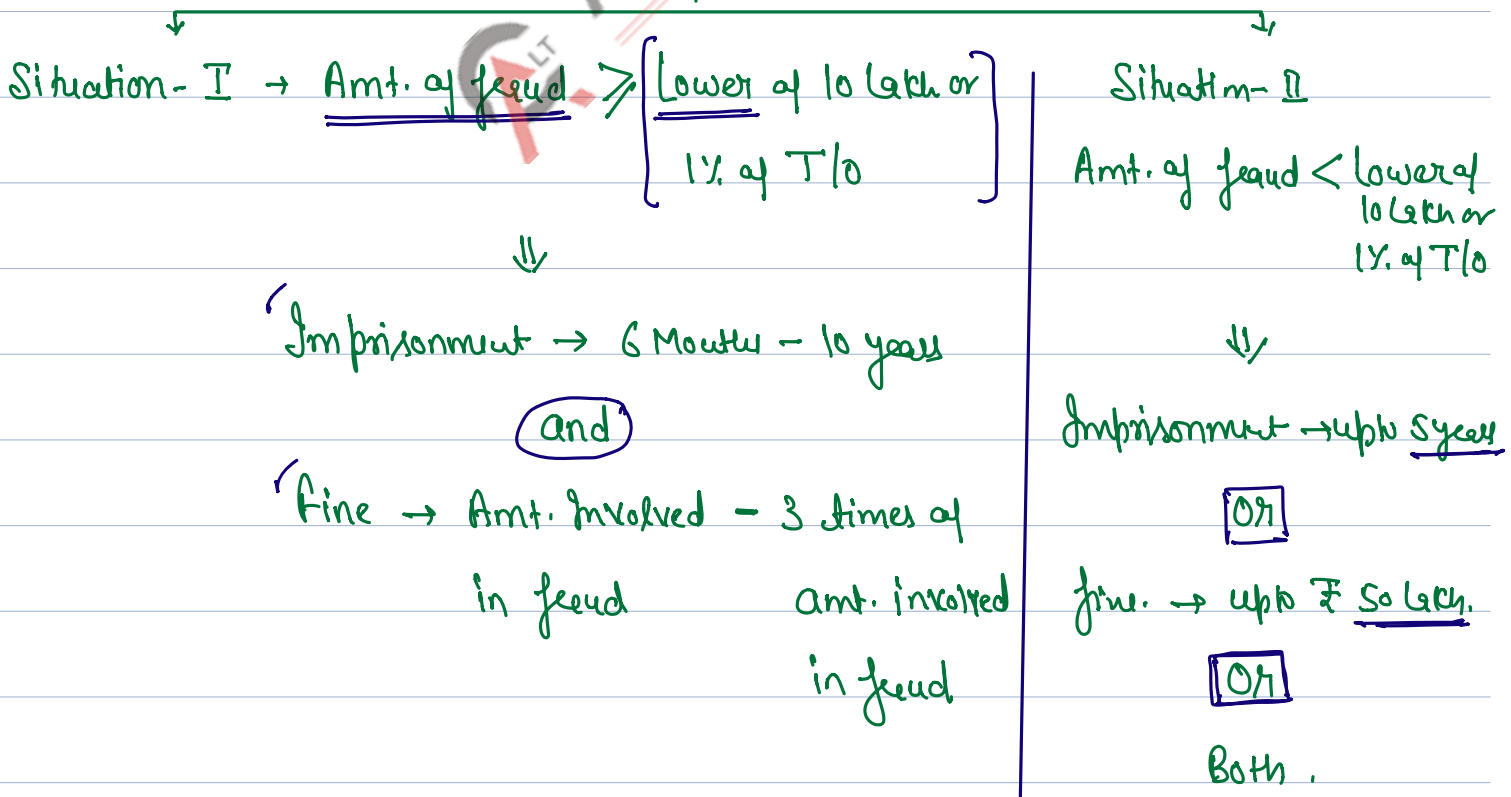 Situation - I → Amt. of fraud ≥ [Lower of 10 lakh or
1% of T/O]
⇓
Imprisonment → 6 Months - 10 years
and
Fine → Amt. Involved - 3 times of
in fraud amt. involved
in fraud
Situation - II
Amt. of fraud < lower of
10 lakh or
1% of T/O
⇓
Imprisonment → upto 5 years
OR
fine. → upto ₹ 50 lakh.
OR
Both.
LT